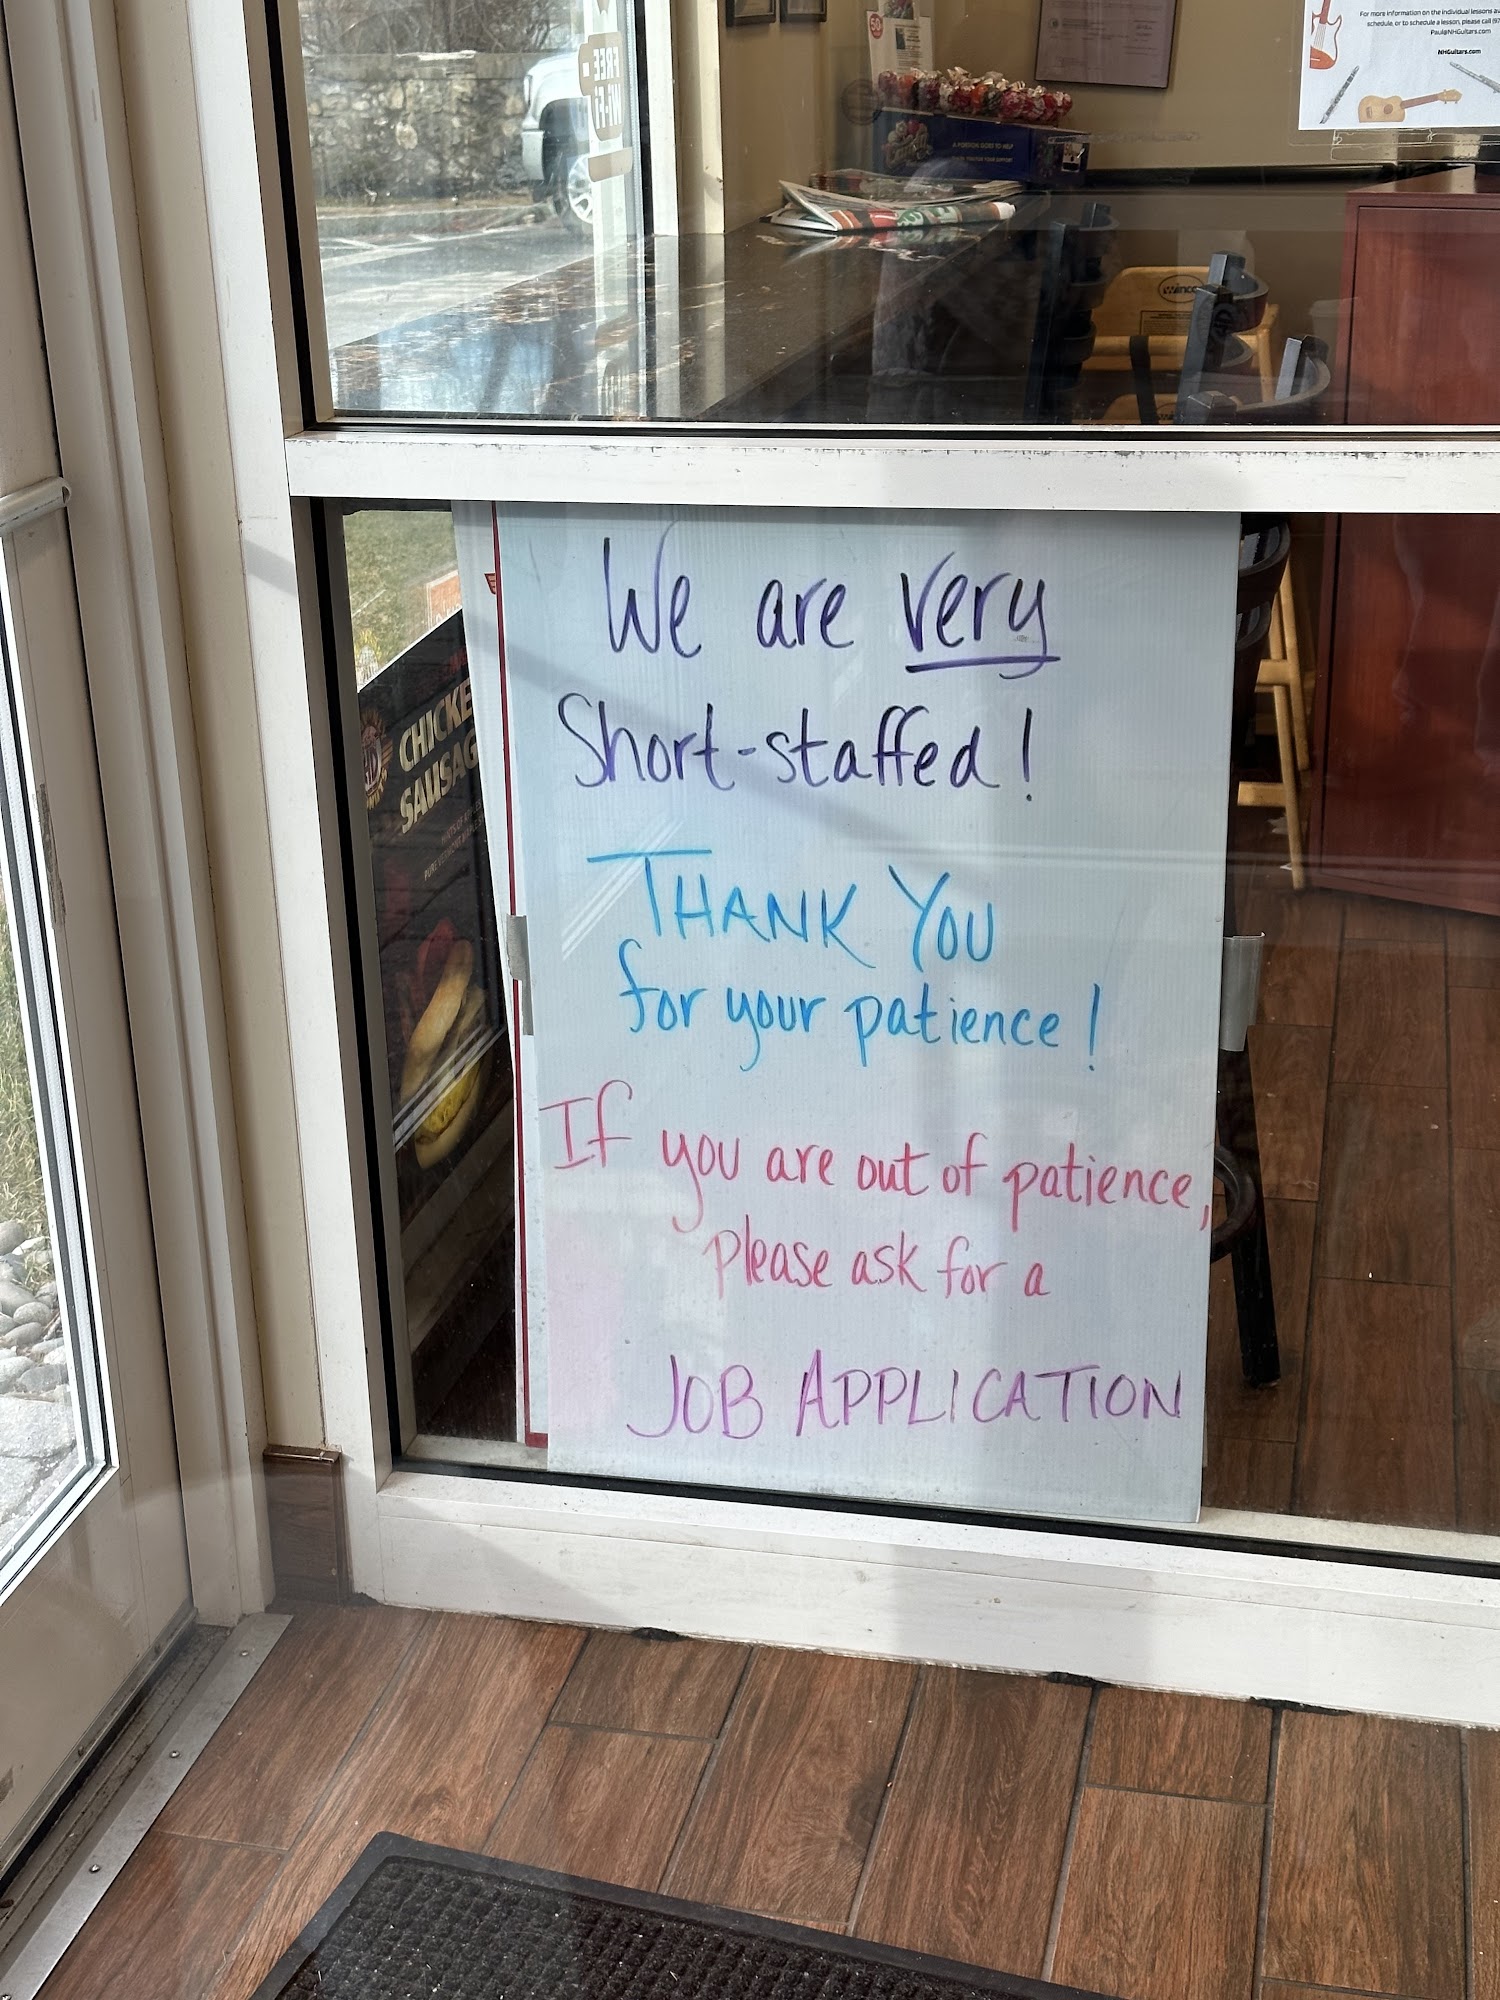 FREE
WI-FI
50
A PORTION GOES TO HELP
For more information on the individual lessons
schedule, or to schedule a lesson, please call
Paul@NHGuitars.com
NHGuitars.com
We are very
Short-staffed!
THANK YOU
for your patience!
If you are out of patience,
please ask for a
JOB APPLICATION
CHICKE
SAUSAG